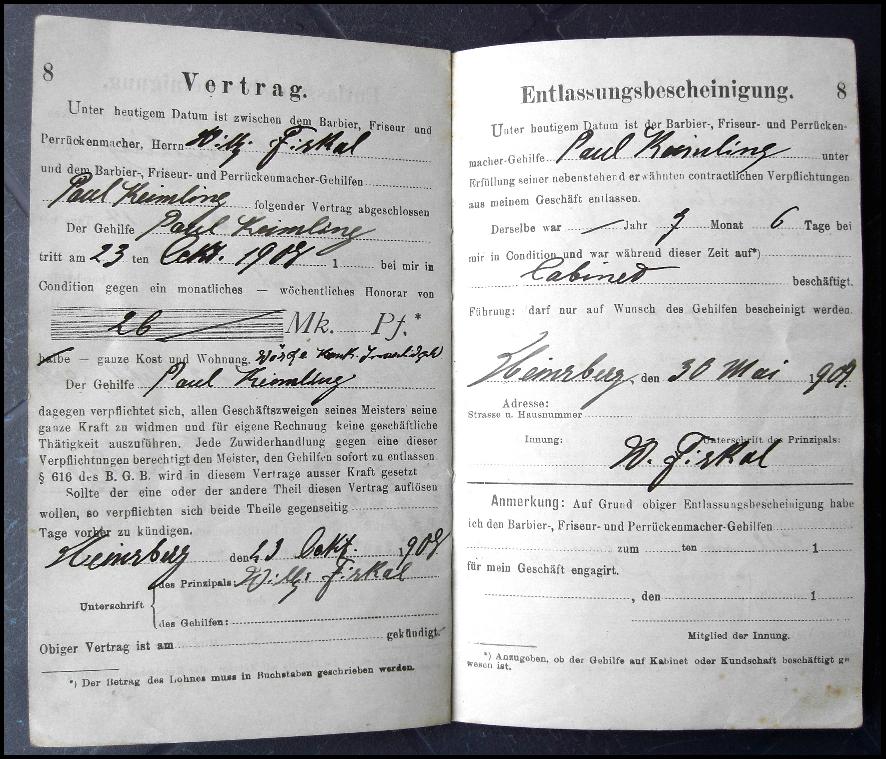 8
Vertrag.
Unter heutigem Datum ist zwischen dem Barbier, Friseur und
Perrückenmacher, Herrn Willy Firkal
und dem Barbier-, Friseur- und Perrückenmacher-Gehilfen
Paul Keimling folgender Vertrag abgeschlossen
Der Gehilfe Paul Keimling
tritt am 23 ten Okt. 1908 1 bei mir in
Condition gegen ein monatliches — wöchentliches Honorar von
26 Mk. Pf.*
halbe — ganze Kost und Wohnung.
Der Gehilfe Paul Keimling
dagegen verpflichtet sich, allen Geschäftszweigen seines Meisters seine
ganze Kraft zu widmen und für eigene Rechnung keine geschäftliche
Thätigkeit auszuführen. Jede Zuwiderhandlung gegen eine dieser
Verpflichtungen berechtigt den Meister, den Gehilfen sofort zu entlassen
§ 616 des B. G. B. wird in diesem Vertrage ausser Kraft gesetzt
Sollte der eine oder der andere Theil diesen Vertrag auflösen
wollen, so verpflichten sich beide Theile gegenseitig
Tage vorher zu kündigen.
Heinsberg den 23 Okt. 1908
des Prinzipals: Willy Firkal
Unterschrift
des Gehilfen:
Obiger Vertrag ist am gekündigt.
*) Der Betrag des Lohnes muss in Buchstaben geschrieben werden.
Entlassungsbescheinigung. 8
Unter heutigem Datum ist der Barbier-, Friseur- und Perrücken-
macher-Gehilfe Paul Keimling unter
Erfüllung seiner nebenstehend erwähnten contractlichen Verpflichtungen
aus meinem Geschäft entlassen.
Derselbe war — Jahr 7 Monat 6 Tage bei
mir in Condition und war während dieser Zeit auf*)
Cabinet beschäftigt.
Führung: darf nur auf Wunsch des Gehilfen bescheinigt werden.
Heinsberg, den 30 Mai 1909.
Adresse:
Strasse u. Hausnummer
Innung: Unterschrift des Prinzipals:
W. Firkal
Anmerkung: Auf Grund obiger Entlassungsbescheinigung habe
ich den Barbier-, Friseur- und Perrückenmacher-Gehilfen
zum ten 1
für mein Geschäft engagirt.
, den 1
Mitglied der Innung.
*) Anzugeben, ob der Gehilfe auf Kabinet oder Kundschaft beschäftigt ge-
wesen ist.